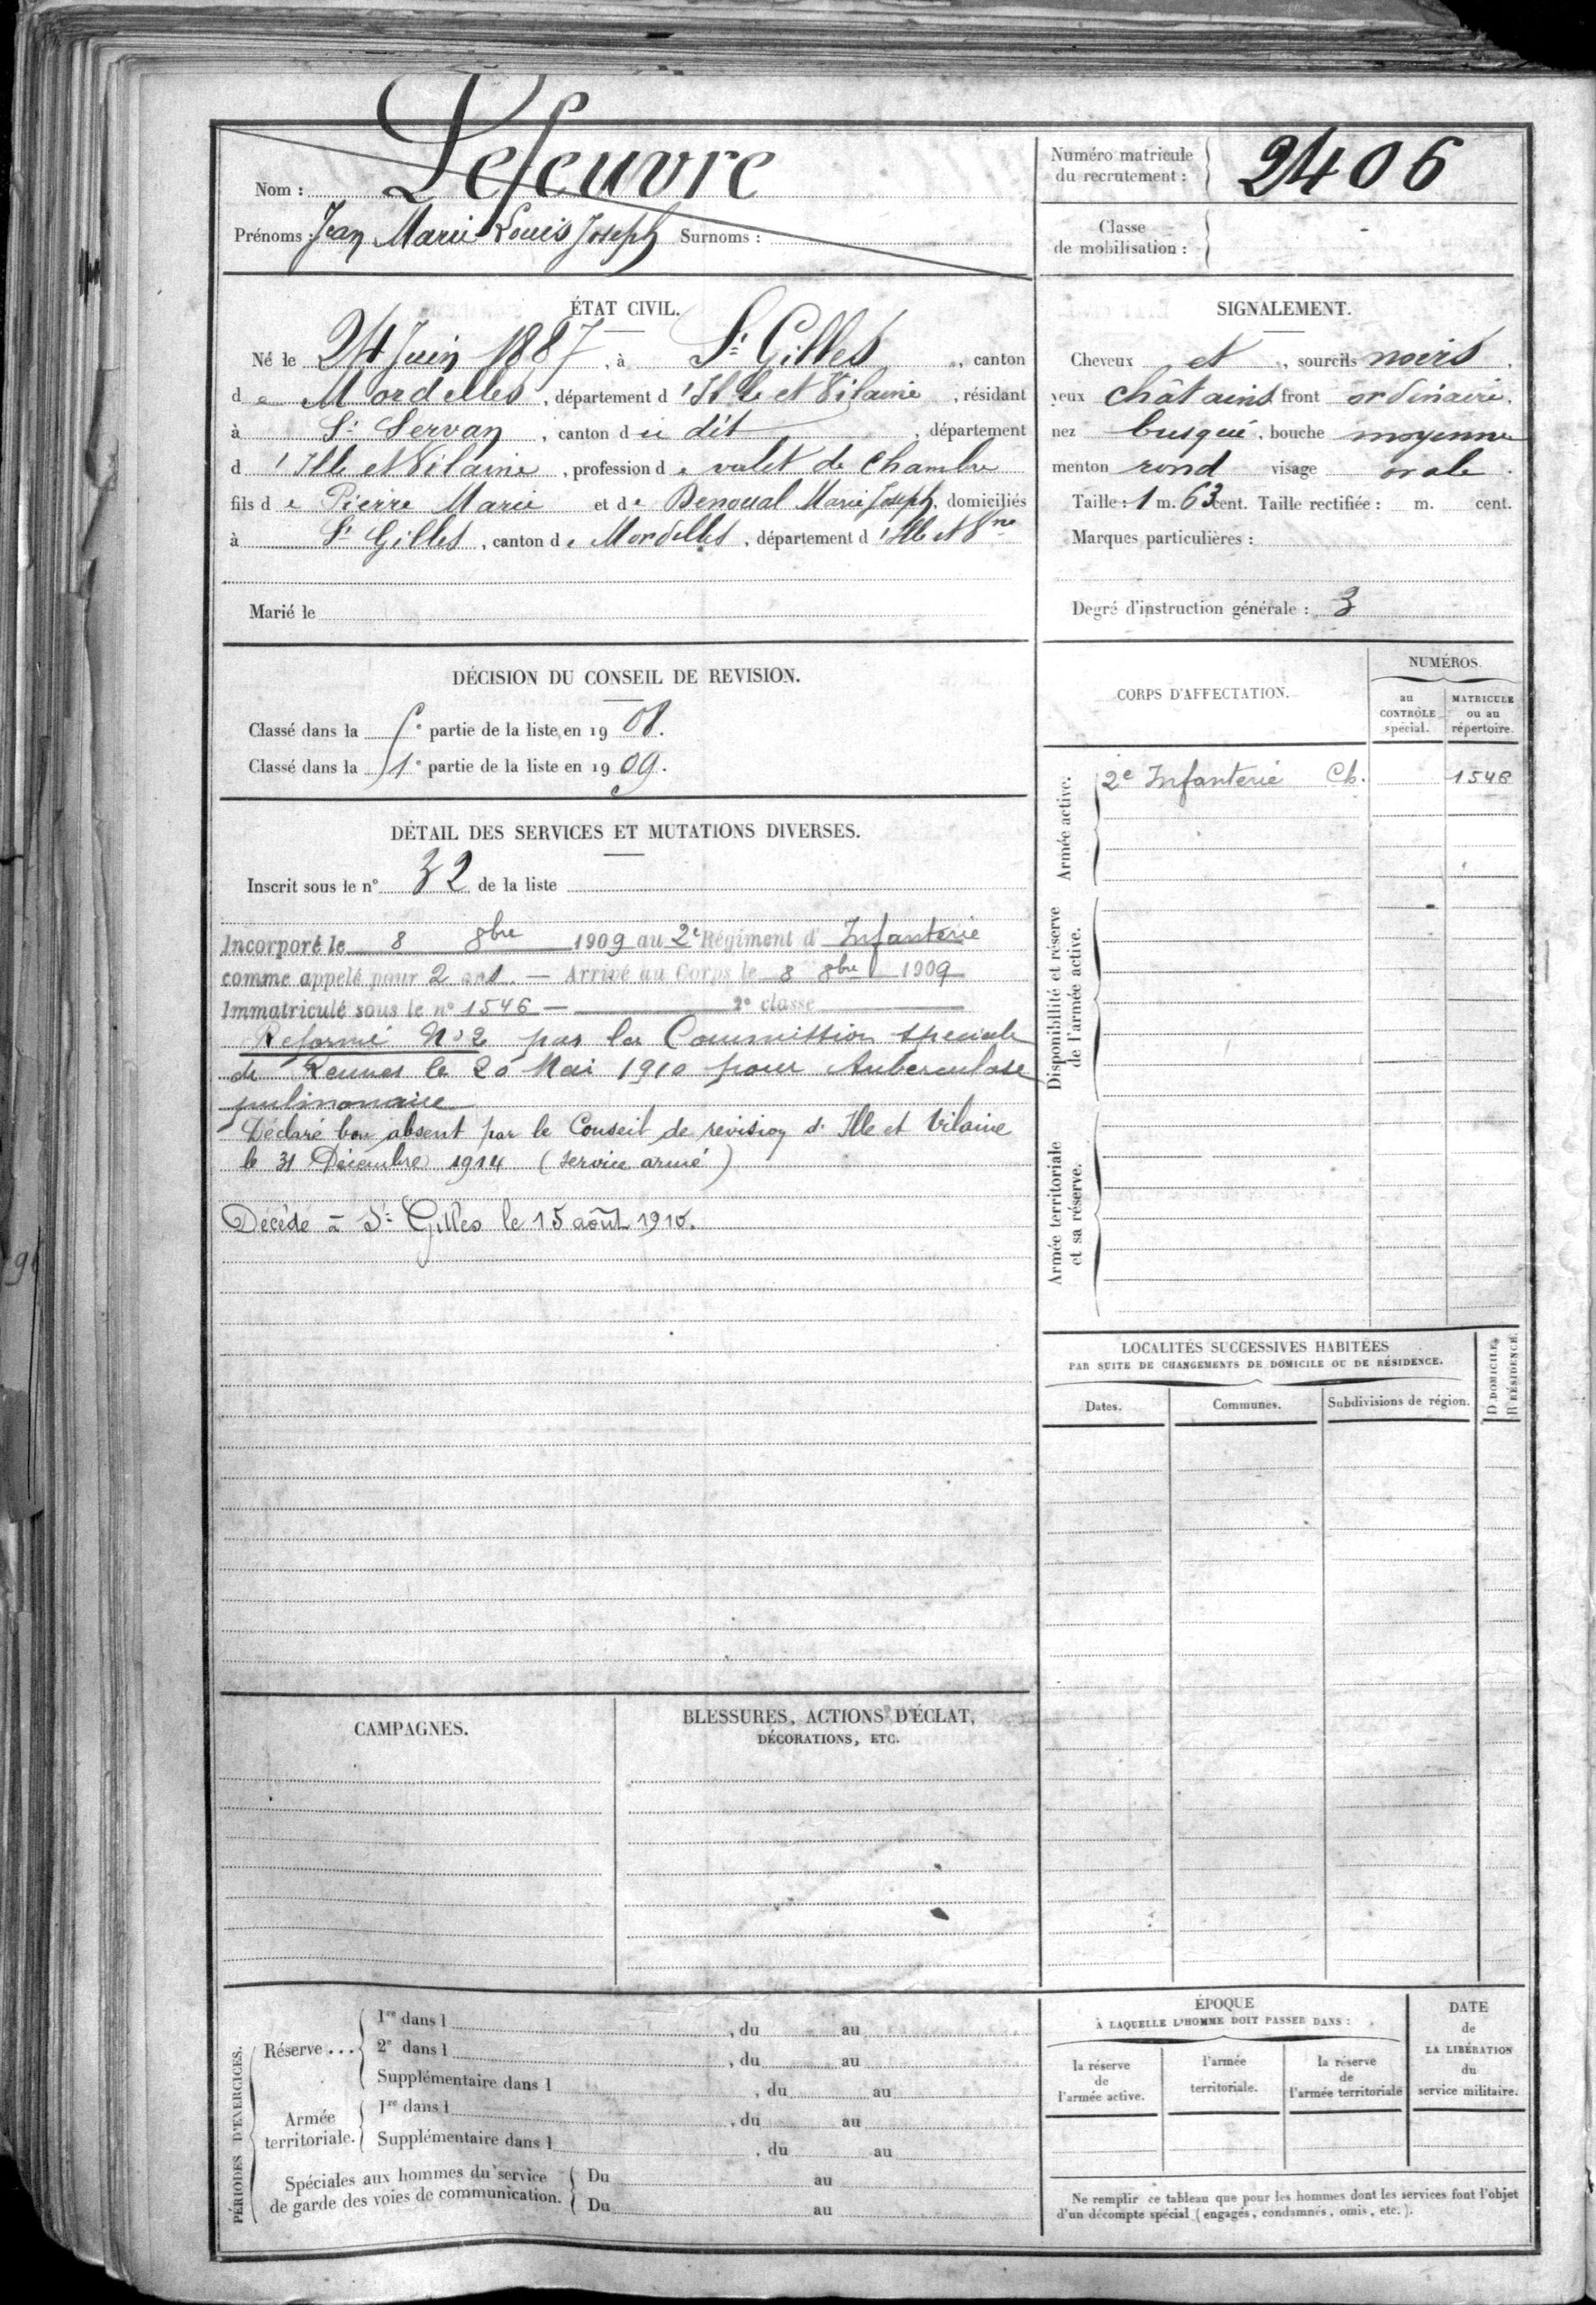 Nom : Lefeuvre
Prénoms : Jean Marie Louis Joseph Surnoms :
Numéro matricule
du recrutement : 2406
Classe
de mobilisation : -
ÉTAT CIVIL.
Né le 24 Juin 1887, à St Gilles, canton
de Mordelles, département d'Ille et Vilaine, résidant
à St Servan, canton du dit, département
d'Ille et Vilaine, profession de valet de chambre
fils de Pierre Marie et de Denoual Marie Joseph, domiciliés
à St Gilles, canton de Mordelles, département d'Ille et Vne
Marié le
SIGNALEMENT.
Cheveux et, sourcils noirs,
yeux châtains front ordinaire,
nez busqué, bouche moyenne
menton rond visage ovale.
Taille : 1 m. 63 cent. Taille rectifiée : m. cent.
Marques particulières :
Degré d'instruction générale : 3
DÉCISION DU CONSEIL DE REVISION.
Classé dans la 5e partie de la liste en 1908.
Classé dans la 1e partie de la liste en 1909.
DÉTAIL DES SERVICES ET MUTATIONS DIVERSES.
Inscrit sous le n° 32 de la liste
Incorporé le 8 8bre 1909 au 2e Régiment d'Infanterie
comme appelé pour 2 ans. — Arrivé au Corps le 8 8bre 1909
Immatriculé sous le n° 1546 — 2e classe
Réformé N°2 par la Commission spéciale
de Rennes le 20 Mai 1910 pour tuberculose
pulmonaire
Déclaré bon absent par le Conseil de revision d'Ille et Vilaine
le 31 Décembre 1914 (service armé)
Décédé à St Gilles le 15 août 1910.
CORPS D'AFFECTATION.
NUMÉROS.
au
CONTRÔLE
spécial.
MATRICULE
ou au
répertoire.
Armée active.
2e Infanterie Ch. 1546
Disponibilité et réserve
de l'armée active.
Armée territoriale
et sa réserve.
LOCALITÉS SUCCESSIVES HABITÉES
PAR SUITE DE CHANGEMENTS DE DOMICILE OU DE RÉSIDENCE.
D. DOMICILE.
R. RÉSIDENCE.
Dates. Communes. Subdivisions de région.
CAMPAGNES.
BLESSURES, ACTIONS D'ÉCLAT,
DÉCORATIONS, ETC.
PÉRIODES D'EXERCICES.
Réserve...
1re dans l , du au
2e dans l , du au
Supplémentaire dans l , du au
Armée
territoriale.
1re dans l , du au
Supplémentaire dans l , du au
Spéciales aux hommes du service
de garde des voies de communication.
Du au
Du au
ÉPOQUE
À LAQUELLE L'HOMME DOIT PASSER DANS :
la réserve
de
l'armée active.
l'armée
territoriale.
la réserve
de
l'armée territoriale
DATE
de
LA LIBÉRATION
du
service militaire.
Ne remplir ce tableau que pour les hommes dont les services font l'objet
d'un décompte spécial (engagés, condamnés, omis, etc.).